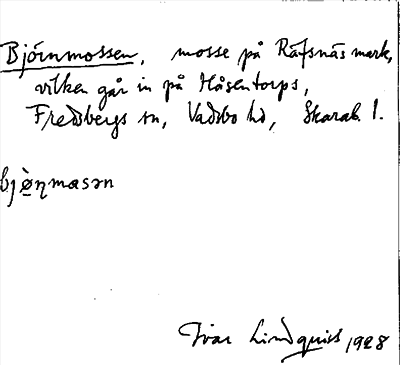 Björnmossen, mosse på Räfsnäs mark,
vilken går in på Håsentorps,
Fredsbergs sn, Vadsbo hd, Skarab. l.
bjö̀ŋmɷsən
Ivar Lindquist 1928